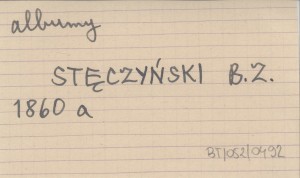 albumy
STĘCZYŃSKI B.Z.
1860 a
BT/052/0492